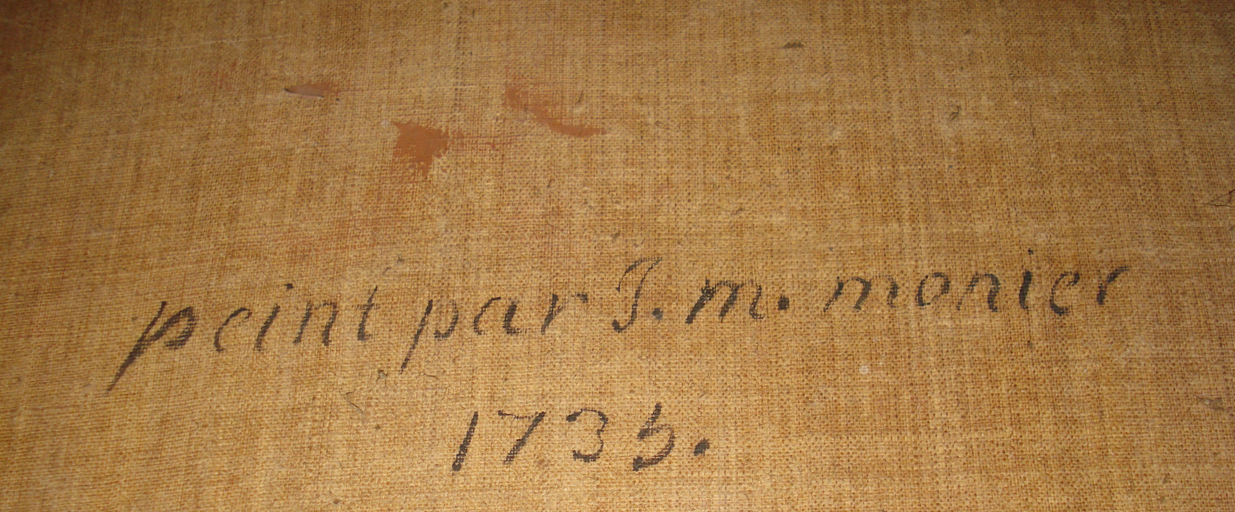 peint par J. m. monier
1735.